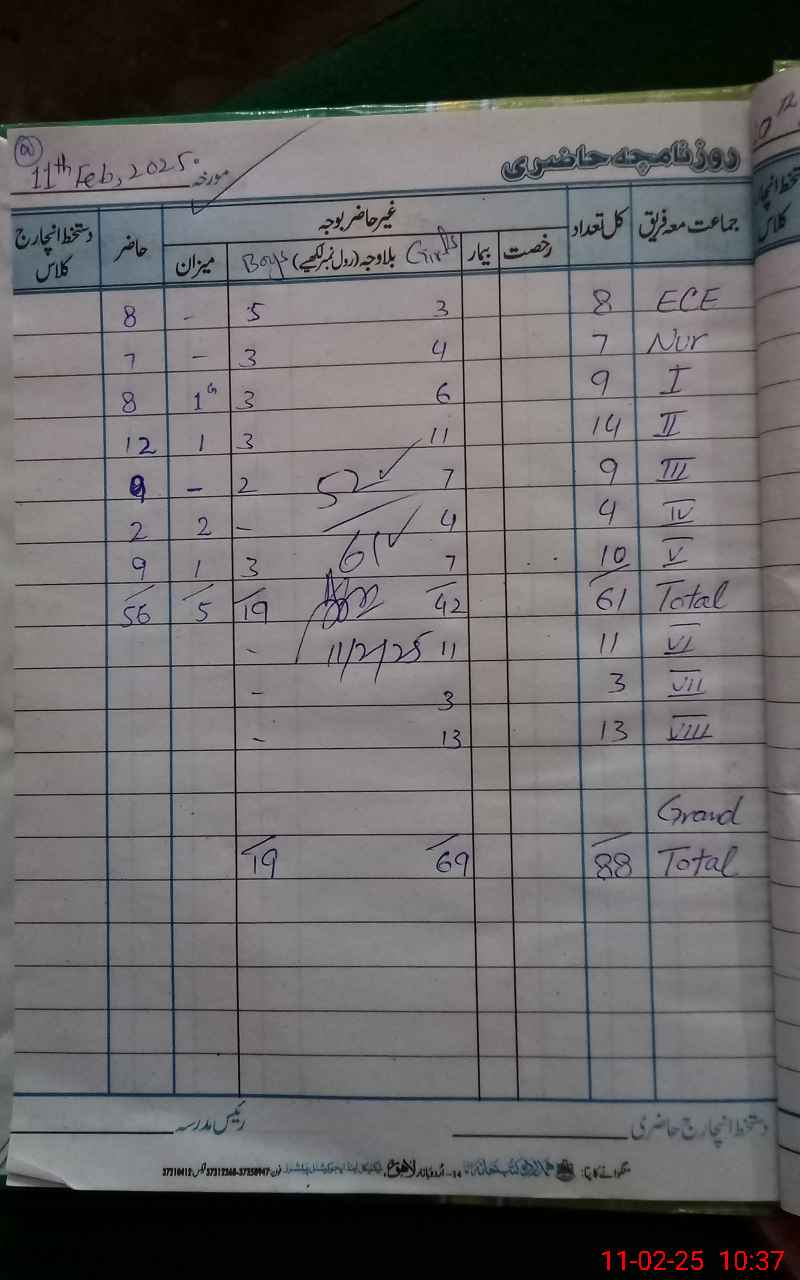 (a)
11th Feb, 2025.
مورخہ
روزنامچہ حاضری
جماعت معہ فریق کل تعداد غیر حاضر بوجہ حاضر دستخط انچارج کلاس
رخصت بیمار Girls بلاوجہ (رول نمبر لکھیے) Boys میزان
8 - 5 3 8 ECE
7 - 3 4 7 Nur
8 1G 3 6 9 I
12 1 3 11 14 II
9 - 2 52 7 9 III
2 2 - 4 4 IV
9 1 3 61 7 10 V
56 5 19 42 61 Total
- 11/2/25 11 11 VI
- 3 3 VII
- 13 13 VIII
Grand
19 69 88 Total
دستخط انچارج حاضری رئیس مدرسہ
11-02-25 10:37